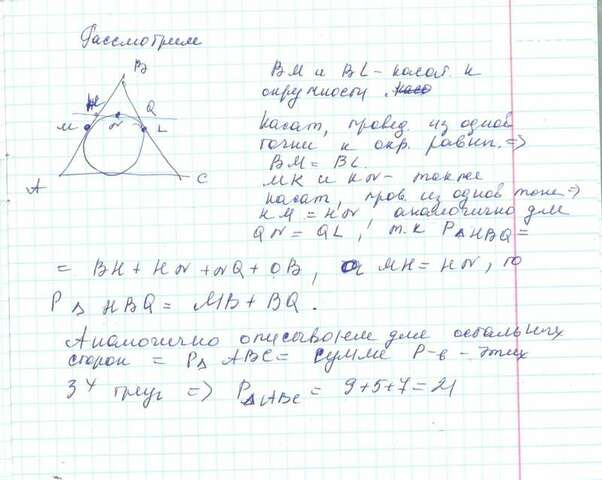 Рассмотрим
B
H
Q
M
N
L
A
C
BM и BL - касат. к
окружности.
касат, провед. из одной
точки к окр. равны. =>
BM = BL.
MK и KN - также
касат, пров. из одной точк =>
KM = KN, аналогично для
QN = QL, т.к P△HBQ =
= BH + HN + NQ + QB, а MH = HN, то
P△HBQ = MB + BQ.
Аналогично описываем для остальных
сторон = P△ABC = сумме P-в - этих
3х треуг => P△ABC = 9+5+7=21